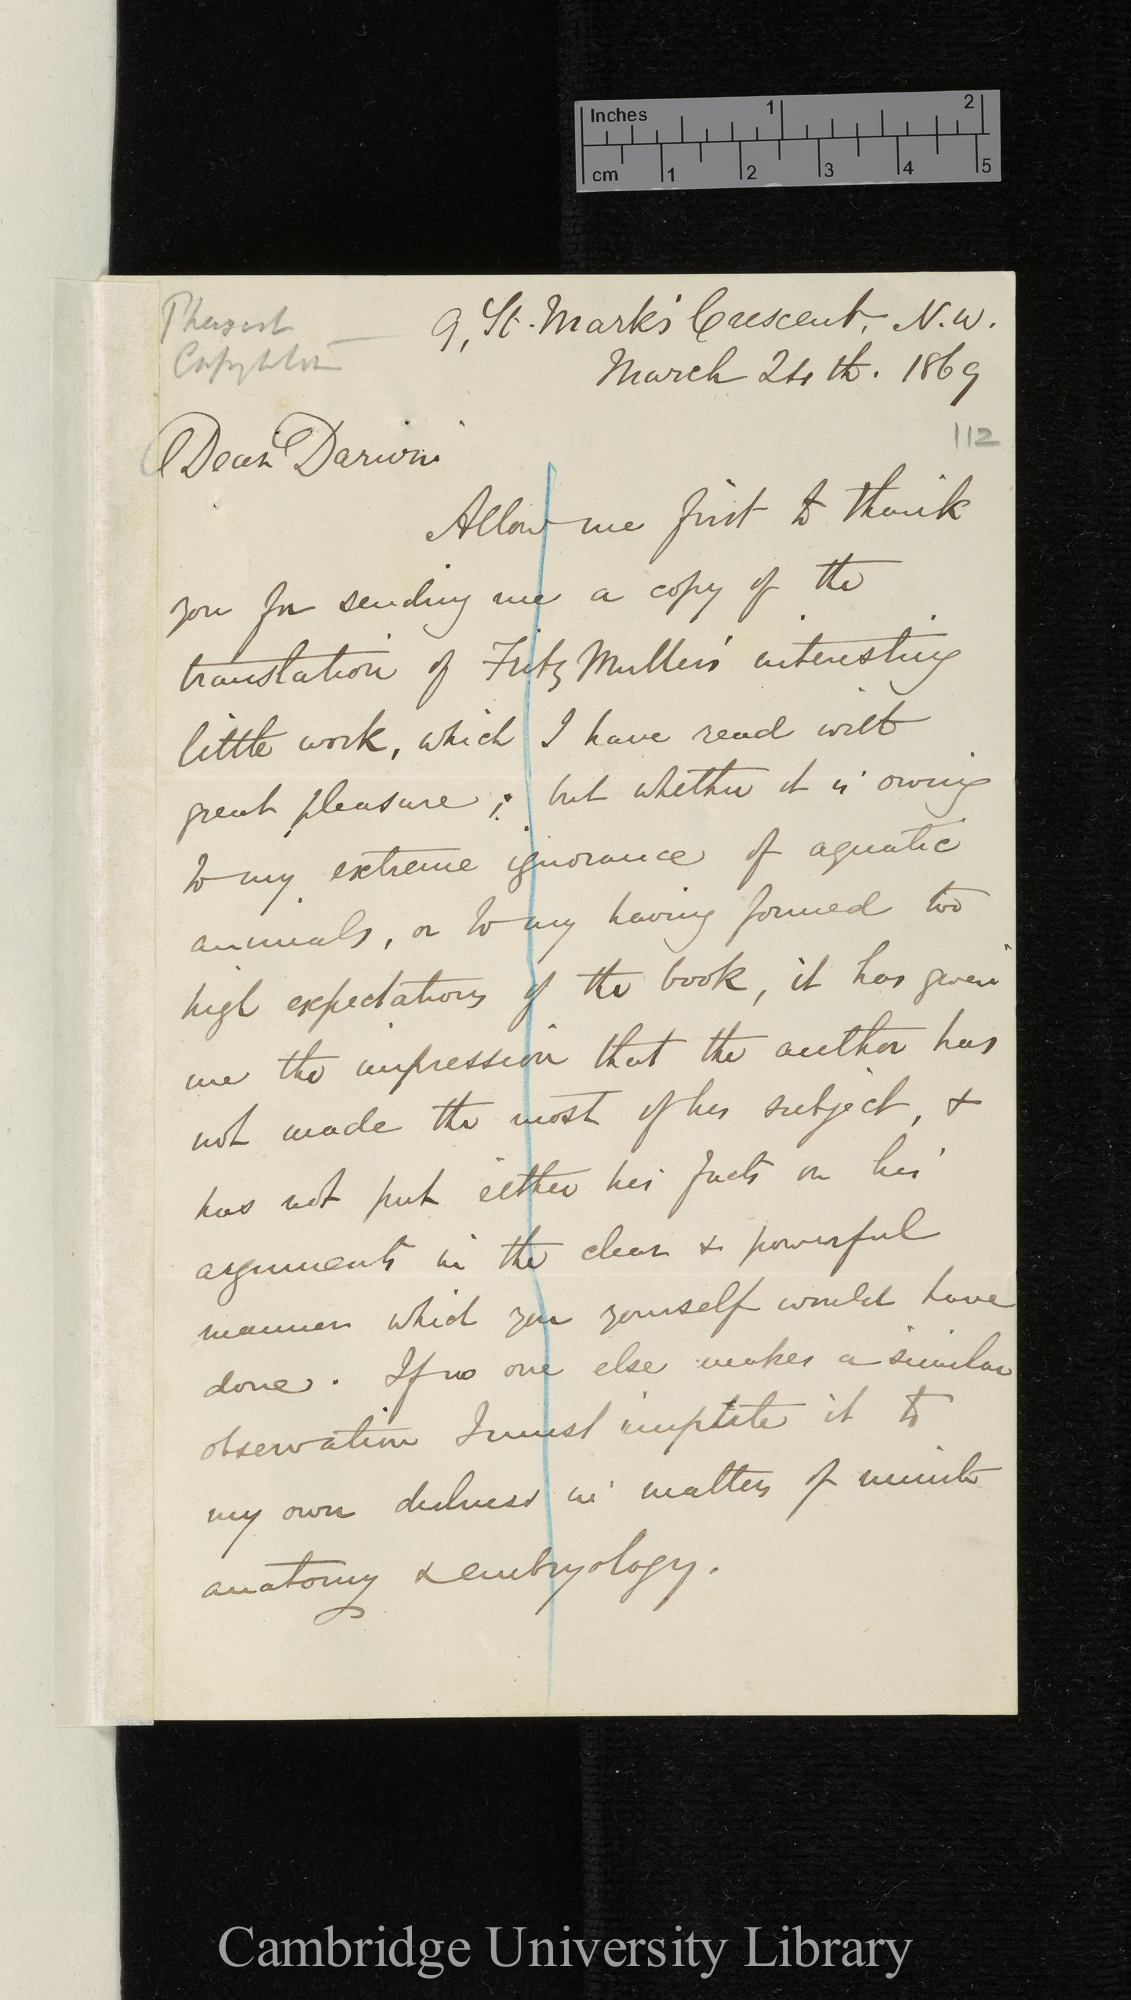 Inches 1 2
cm 1 2 3 4 5
9, St. Mark's Crescent, N.W.
March 24th. 1869
112
Dear Darwin
Allow me first to thank
you for sending me a copy of the
translation of Fritz Muller's interesting
little work, which I have read with
great pleasure; but whether it is owing
to my extreme ignorance of aquatic
animals, or to my having formed too
high expectations of the book, it has given
me the impression that the author has
not made the most of his subject, &
has not put either his facts or his
arguments in the clear & powerful
manner which you yourself would have
done. If no one else makes a similar
observation I must impute it to
my own dulness in matters of minute
anatomy & embryology.
Cambridge University Library